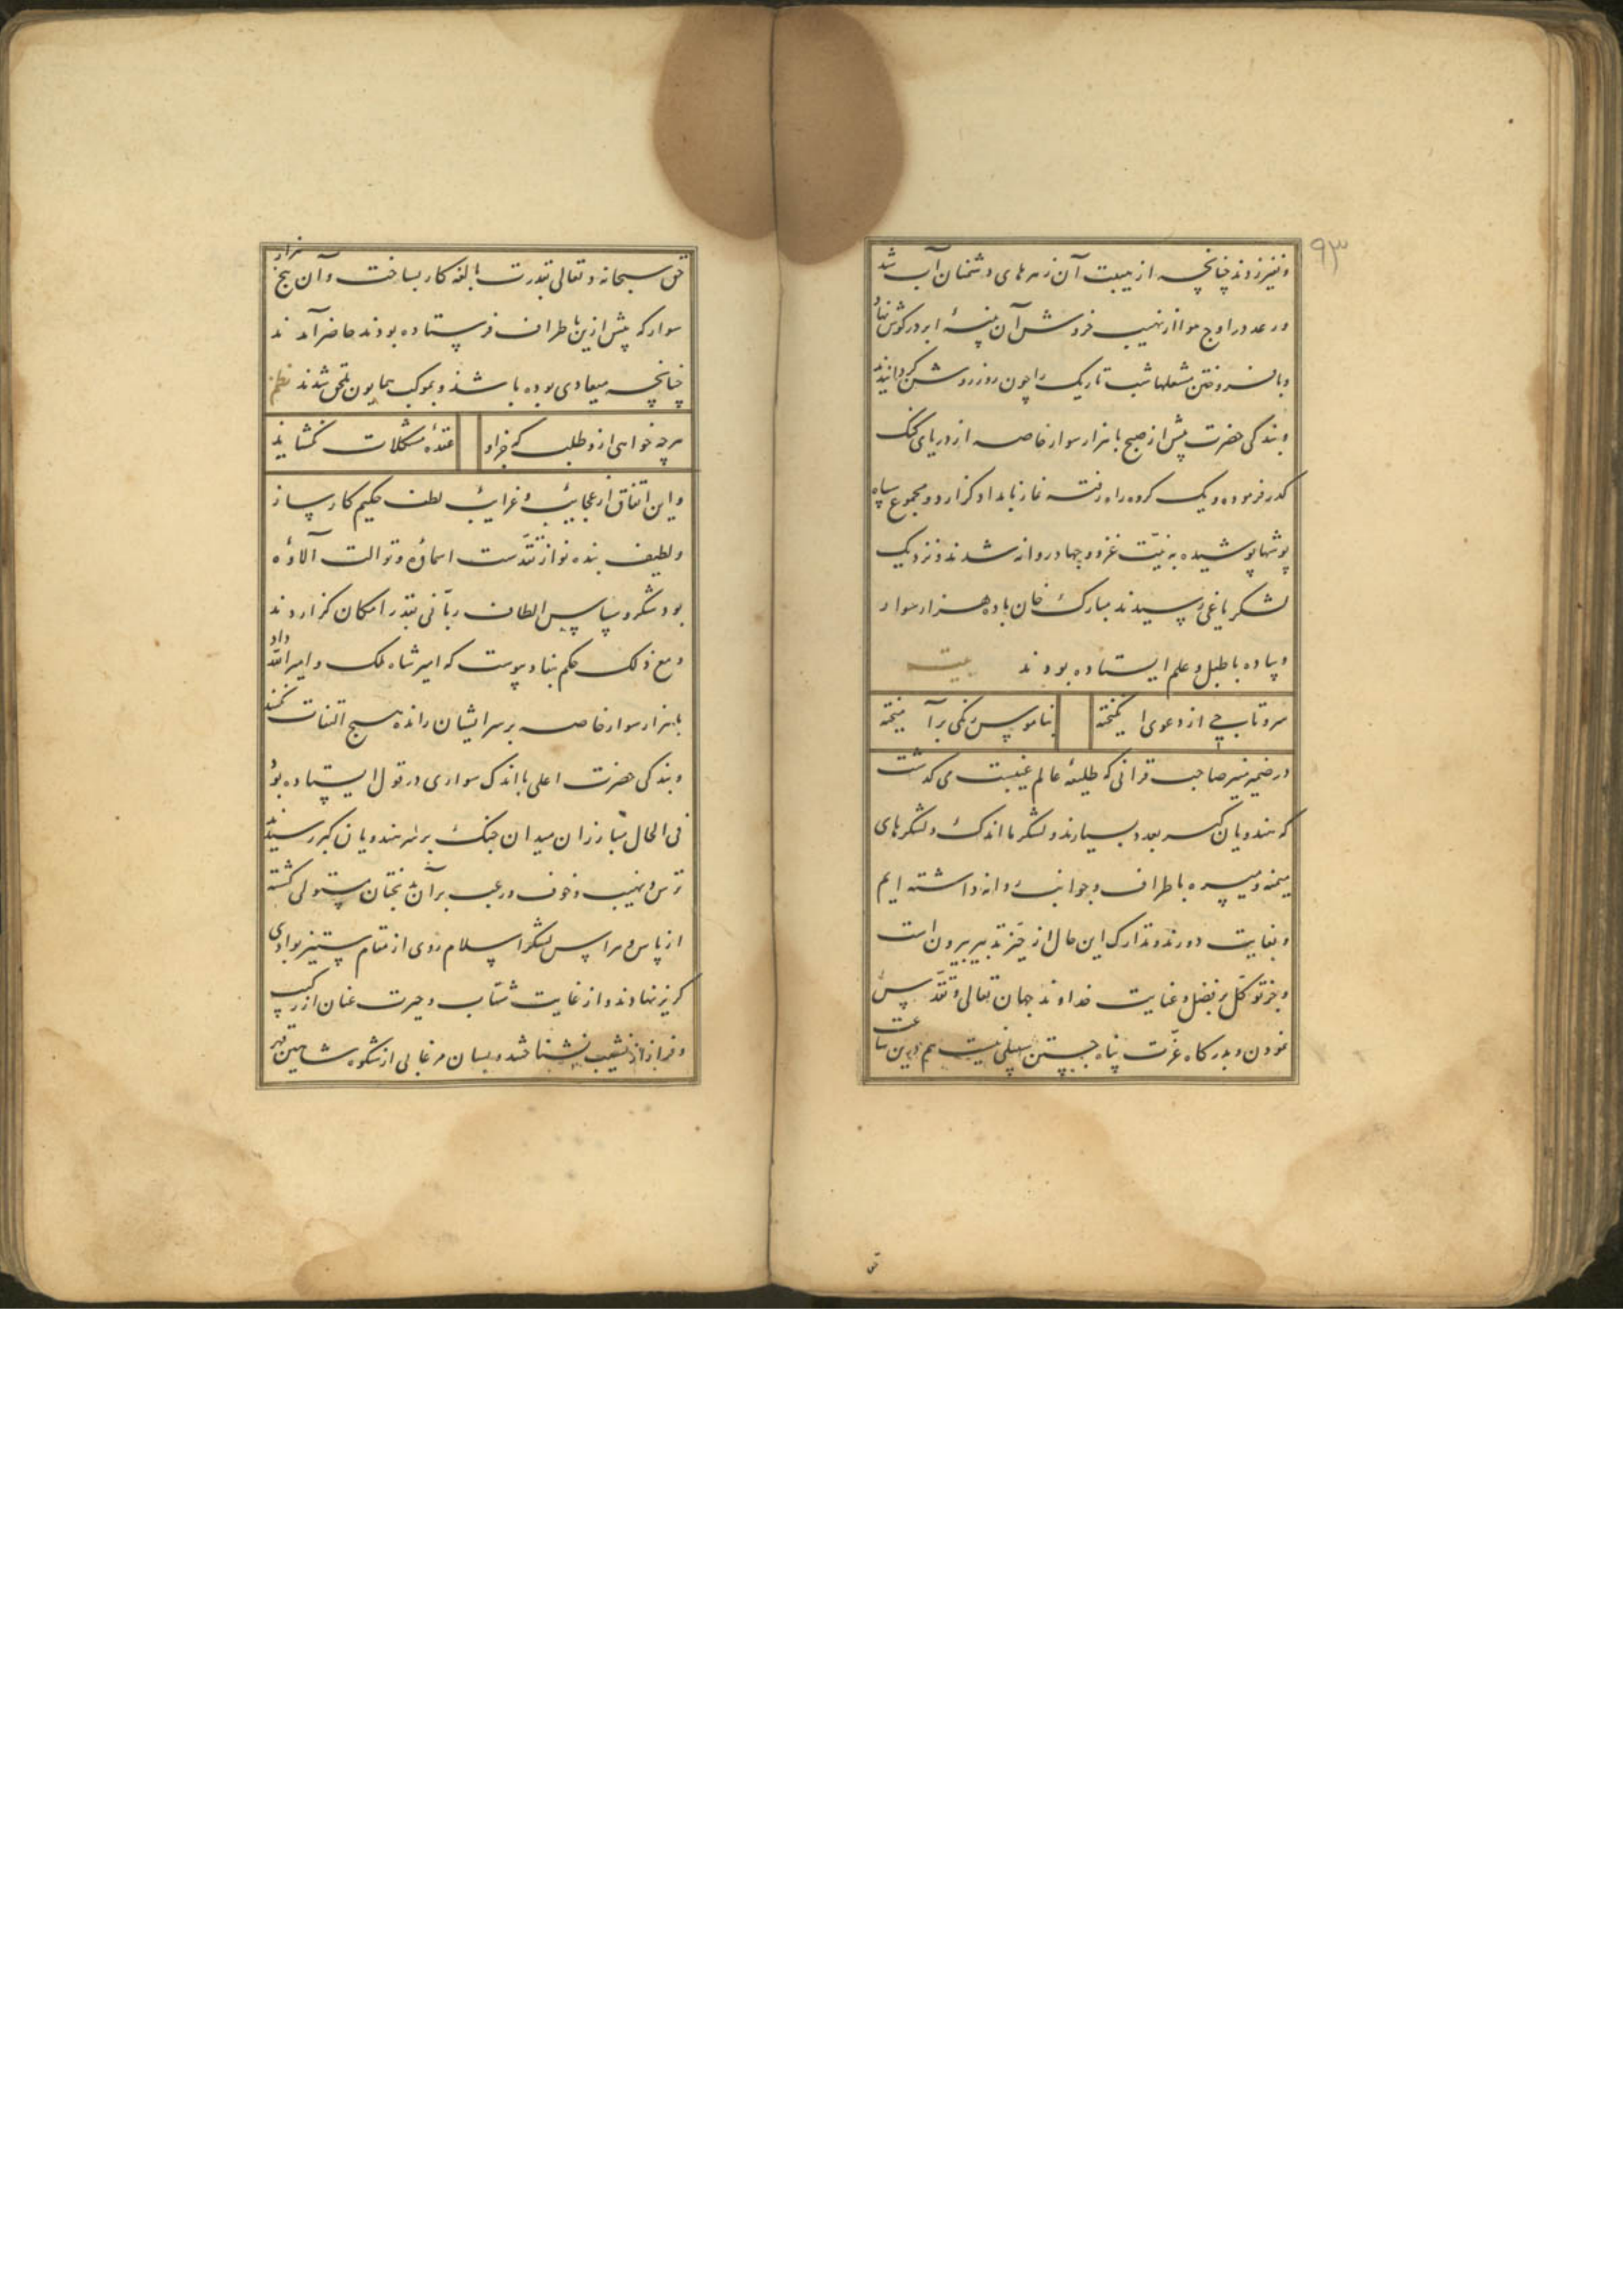 ۹۳
و نفیر زدند چنانچه از هیبت آن زهرهای دشمنان آب شد
و رعد در اوج هوا از نهیب خروش آن پنبهٔ ابر در گوش نهاد
و بافروختن مشعلها شب تاریک را چون روز روشن گردانیدند
و بندگی حضرت پیش از صبح با هزار سوار خاصه از دریای گنگ
گذر فرموده و یک گروه راه رفته نماز بامداد گزارد و مجموع سپاه
پوشها پوشیده به نیّت غزو و جهاد روانه شدند و نزدیک
لشکر یاغی رسیدند مبارک خان با ده هزار سوار
و پیاده با طبل و علم ایستاده بودند بیت
سر و تاب چی از دعوی انگیخته
بناموس رنگی برآمیخته
در ضمیر منیر صاحب قرانی که طلیعهٔ عالم غیبست می گذشت
که هندویان گبر بعدد بسیارند و لشکر ما اندک و لشکرهای
میمنه و میسره باطراف و جوانب روانه داشته ایم
و بغایت دورند و تدارک این حال از حیّز تدبیر بیرون است
و جز توکّل بر فضل و عنایت خداوند جهان تعالی و تقدّس
نمودن و بدرگاه عزّت پناه جستن سبیلی نیست هم درین ساعت
حق سبحانه و تعالی بقدرت بالغه کار بساخت و آن پنج هزار
سوار که پیش ازین باطراف فرستاده بودند حاضر آمدند
چنانچه میعادی بوده باشد و بموکب همایون ملحق شدند نظم
هرچه خواهی ازو طلب که جز او
عقدهٔ مشکلات نگشاید
و این اتفاق از عجایب و غرایب لطف حکیم کارساز
و لطیف بنده نواز تقدّست اسماؤه و توالت آلاؤه
بود شکر و سپاس الطاف ربّانی بقدر امکان گزاردند
و مع ذلک حکم بنفاد پیوست که امیر شاه ملک و امیر الله داد
با هزار سوار خاصه بر سر ایشان رانده هیچ التفات نکنند
و بندگی حضرت اعلی با اندک سواری در قول ایستاده بود
فی الحال مبارزان میدان جنگ بر سر هندویان گبر رسیدند
ترس و نهیب و خوف و رعب بر آن نختان مستولی گشته
از باس و هراس لشکر اسلام روی از مقام ستیز بوادی
گریز نهادند و از غایت شتاب و حیرت عنان از رکیب
و فراز از نشیب نشناختند و بسان مرغابی از شکوه شاهین قهر